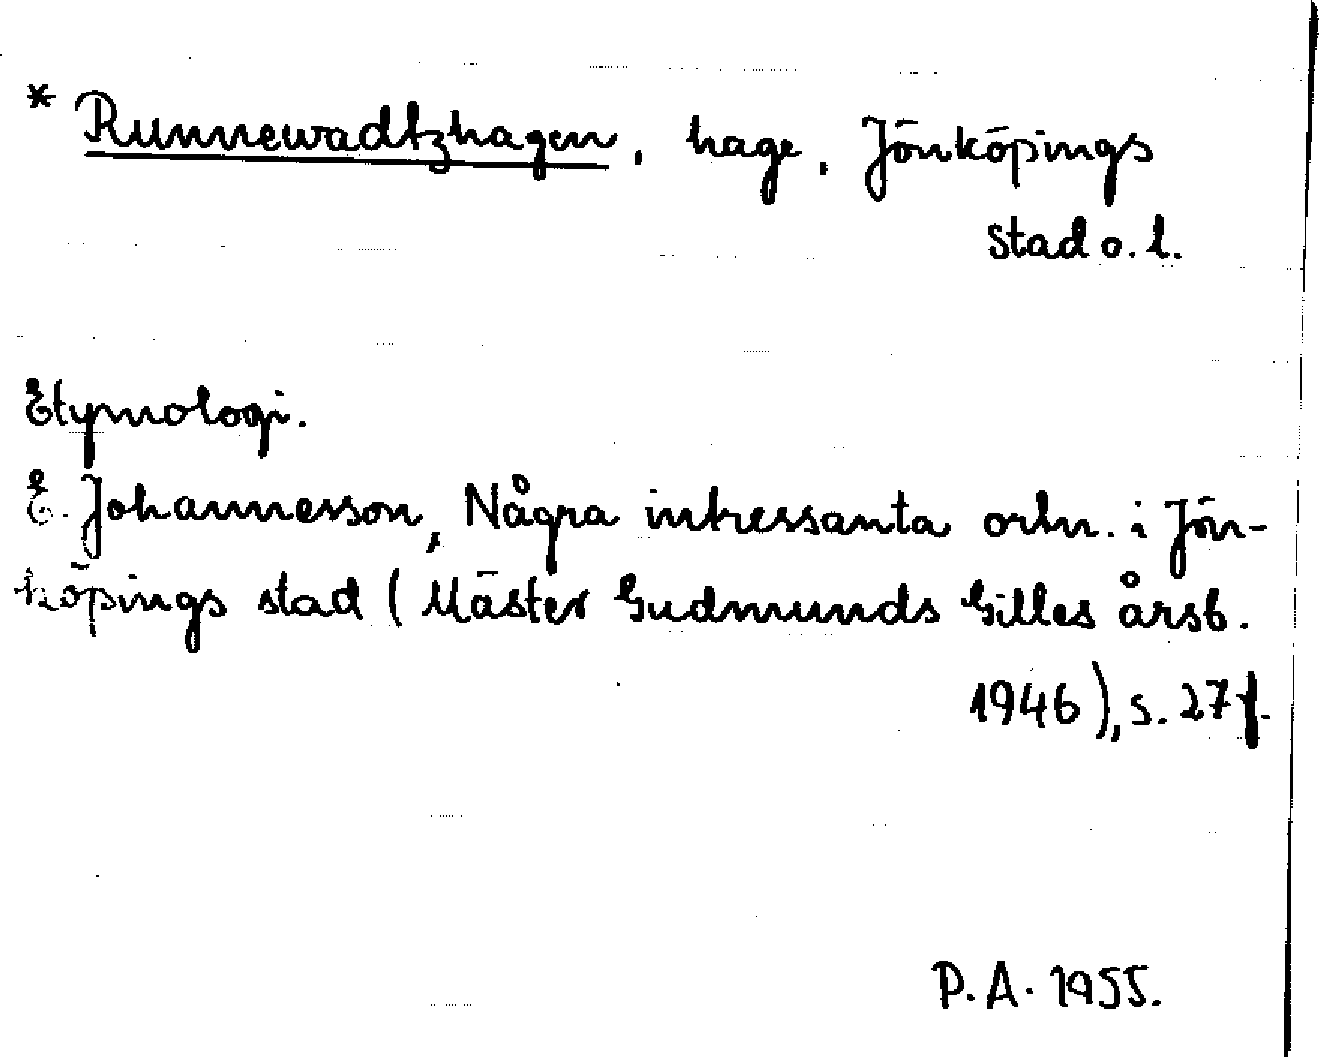 * Runnewadtzhagen, hage, Jönköpings
stad o. l.
Etymologi.
E. Johannesson, Några intressanta ortn. i Jön-
köpings stad (Mäster Gudmunds Gilles årsb.
1946), s. 27 f.
P. A. 1955.